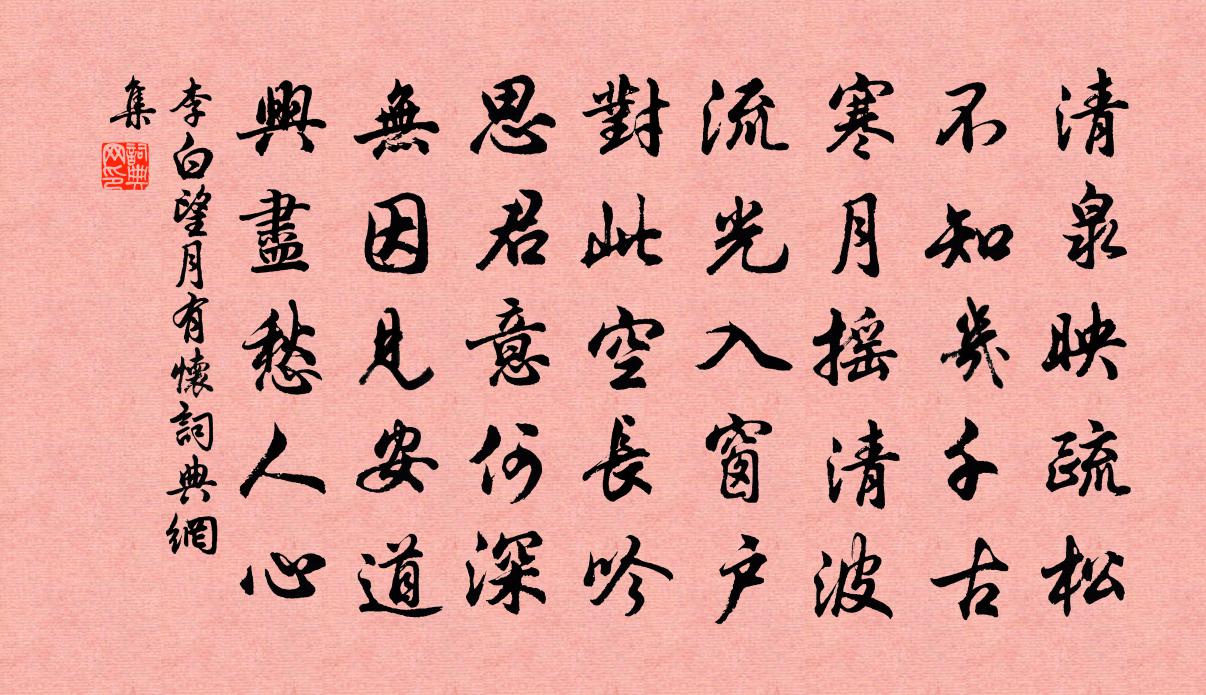 清泉映疏松
不知幾千古
寒月摇清波
流光入窗户
對此空長吟
思君意何深
無因見安道
興盡愁人心
李白望月有懷詞典網
集
詞典
网印